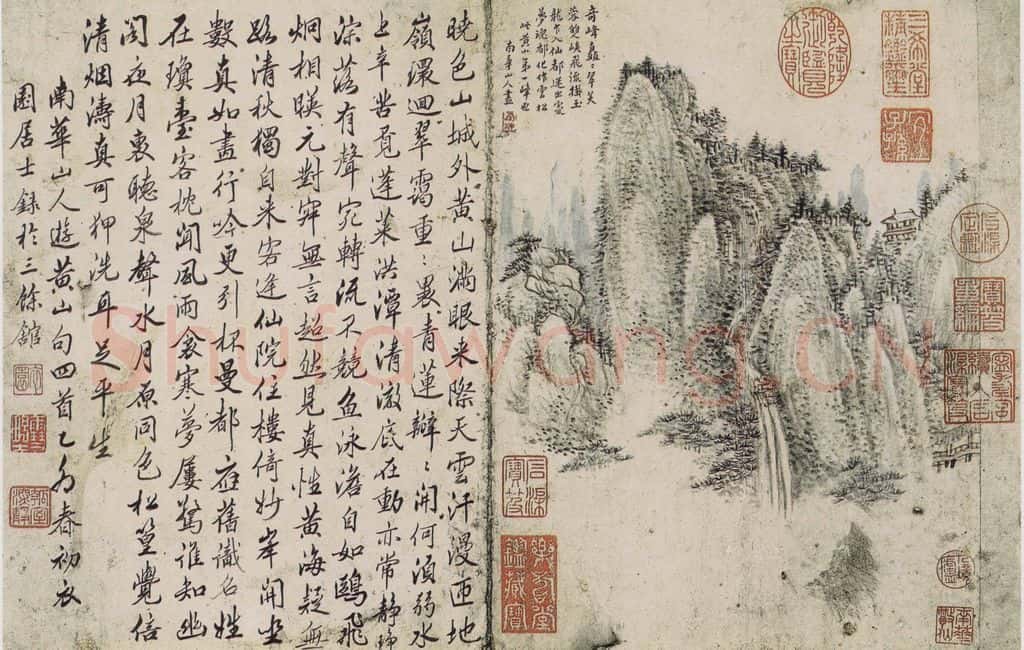 奇峰矗〻翠芙
蓉雙峽飛流掛玉
龍 入仙都遂出
夢魂都化作雲松
此黃山第一峰也
南華山人畫
乾隆御覽之寶
三希堂精鑑璽
宜子孫
石渠定鑑
寶笈重編
石渠寶笈
曉色山城外黃山滿眼來際天雲汗漫匝地
嶺環迴翠靄重〻裹青蓮瓣〻開何須弱水
上辛苦覓蓬萊洪潭清澈底在動亦常靜
深落有聲宛轉流不競魚泳澹自如鷗飛
炯相暎元對寂無言超然見真性黃海疑無
路清秋獨自來客逢仙院住樓倚妙峯開坐
數真如畫行吟更引杯曼都應舊識名姓
在瓊臺客枕聞風雨衾寒夢屢驚誰知幽
閣夜月裏聽泉聲水月原同色松篁覺倍
清烟濤真可狎洗耳足平生
南華山人遊黃山句四首乙卯春初衣
園居士錄於三餘館
Shufawang.CN